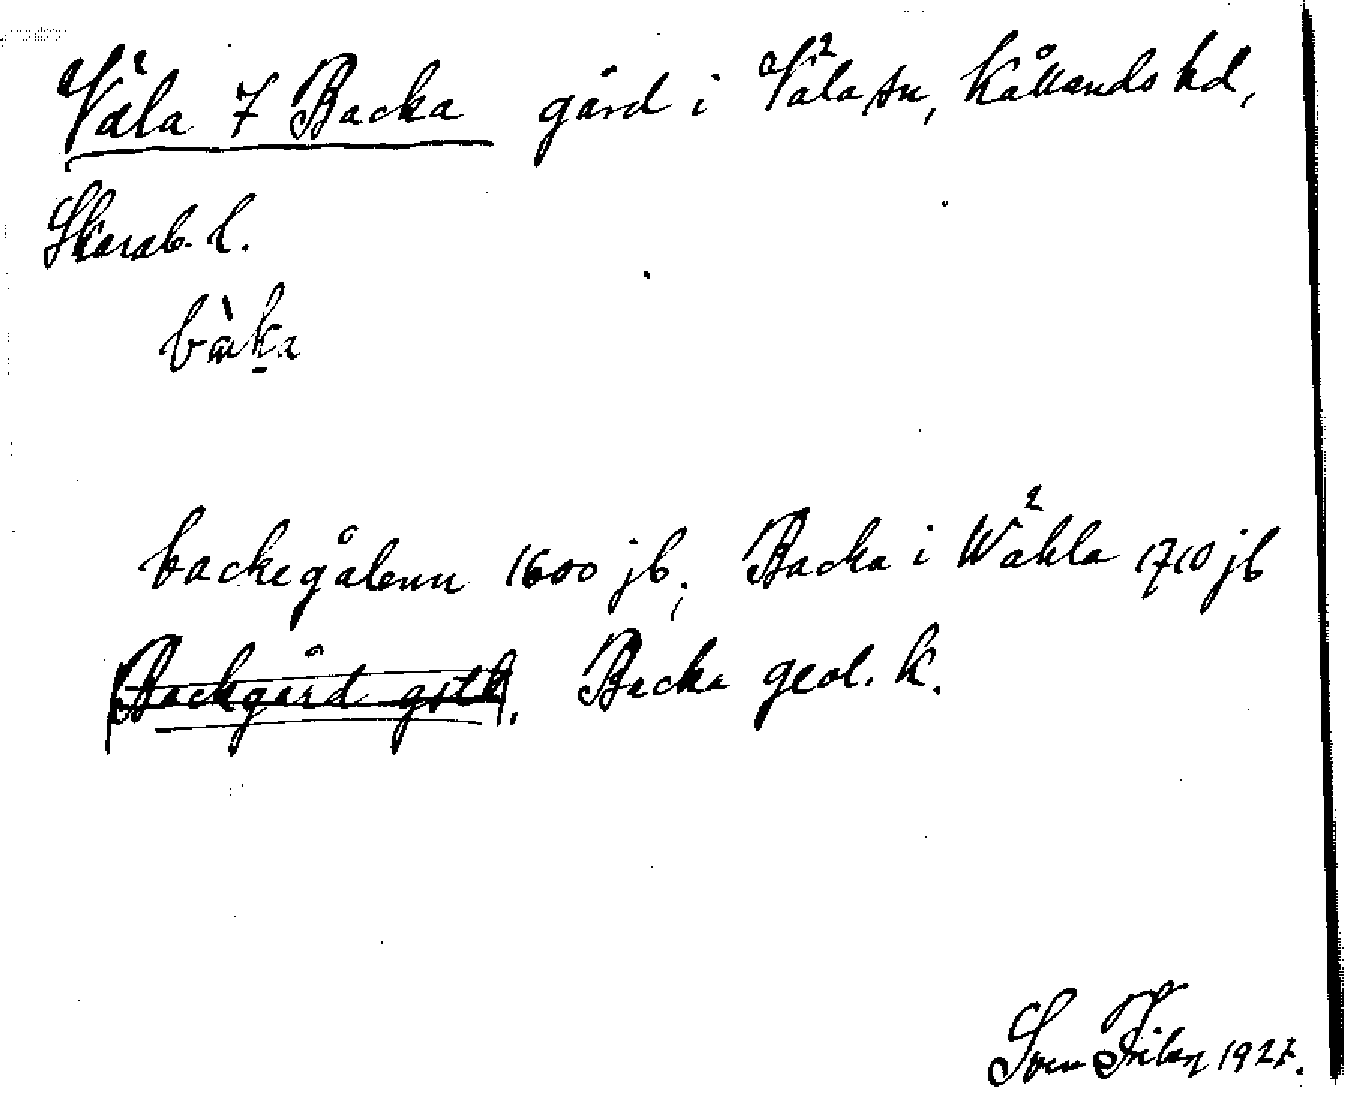 Väla 7 Backa gård i Väla sn, Kållands hd,
Skarab. l.
bàka
backegålenn 1600 jb; Backa i Wähla 1710 jb
Backgård gstk. Backa geol. k.
Sven 1927.